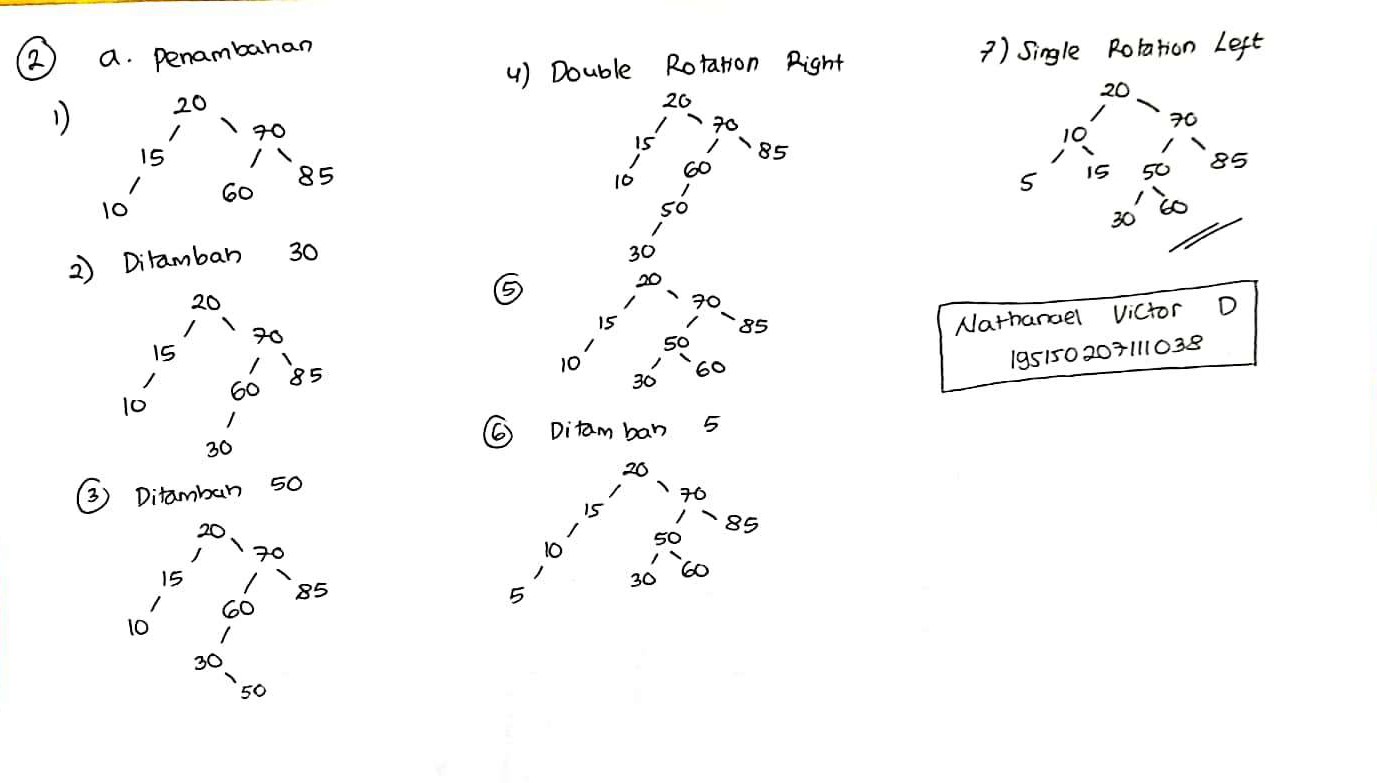 ② a. Penambahan
1)
20
15 70
10 60 85
2) Ditambah 30
20
15 70
10 60 85
30
③ Ditambah 50
20
15 70
10 60 85
30
50
4) Double Rotation Right
20
15 70
10 60 85
50
30
⑤
20
15 70
10 50 85
30 60
⑥ Ditambah 5
20
15 70
10 50 85
5 30 60
7) Single Rotation Left
20
10 70
5 15 50 85
30 60
Nathanael Victor D
195150207111038